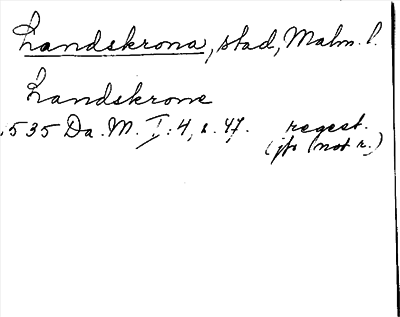 Landskrona, stad, Malm. l.
Landskrone
1535 Da. M. I: 4, s. 47. regest.
(jfr not r.)